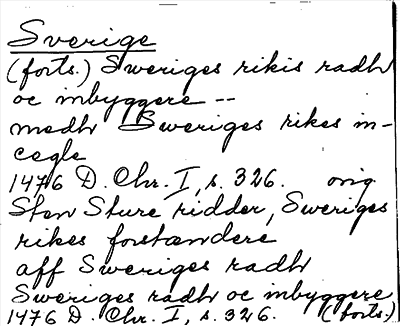 Sverige
(forts.) Sweriges rikis radh
oc inbyggere --
medh Sweriges rikes in-
cegle
1476 D. Chr. I, s. 326. orig
Sten Sture ridder, Sweriges
rikes forstandere
aff Sweriges radh
Sweriges radh oc inbyggere
1476 D. Chr. I, s. 326. (forts.)